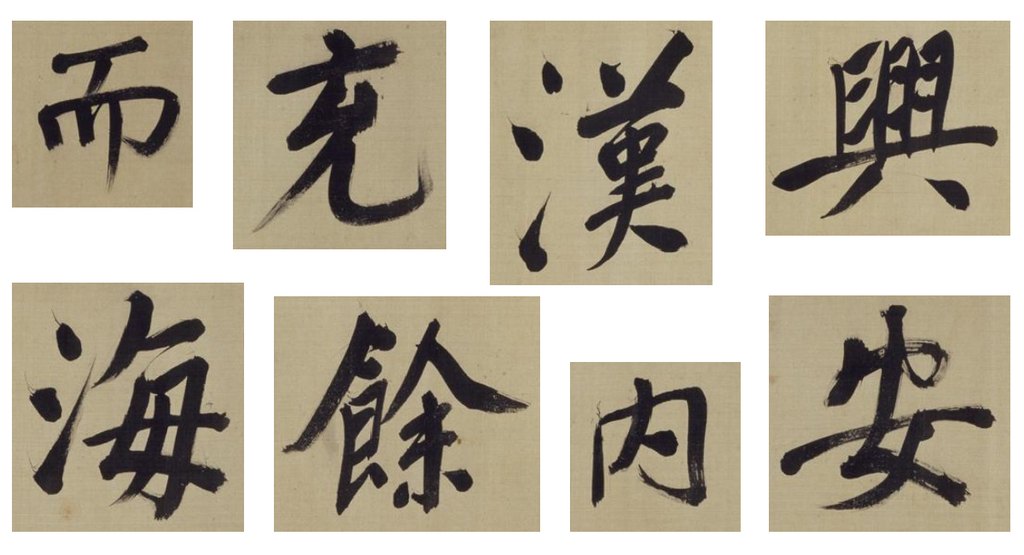 而充漢興
海餘内安